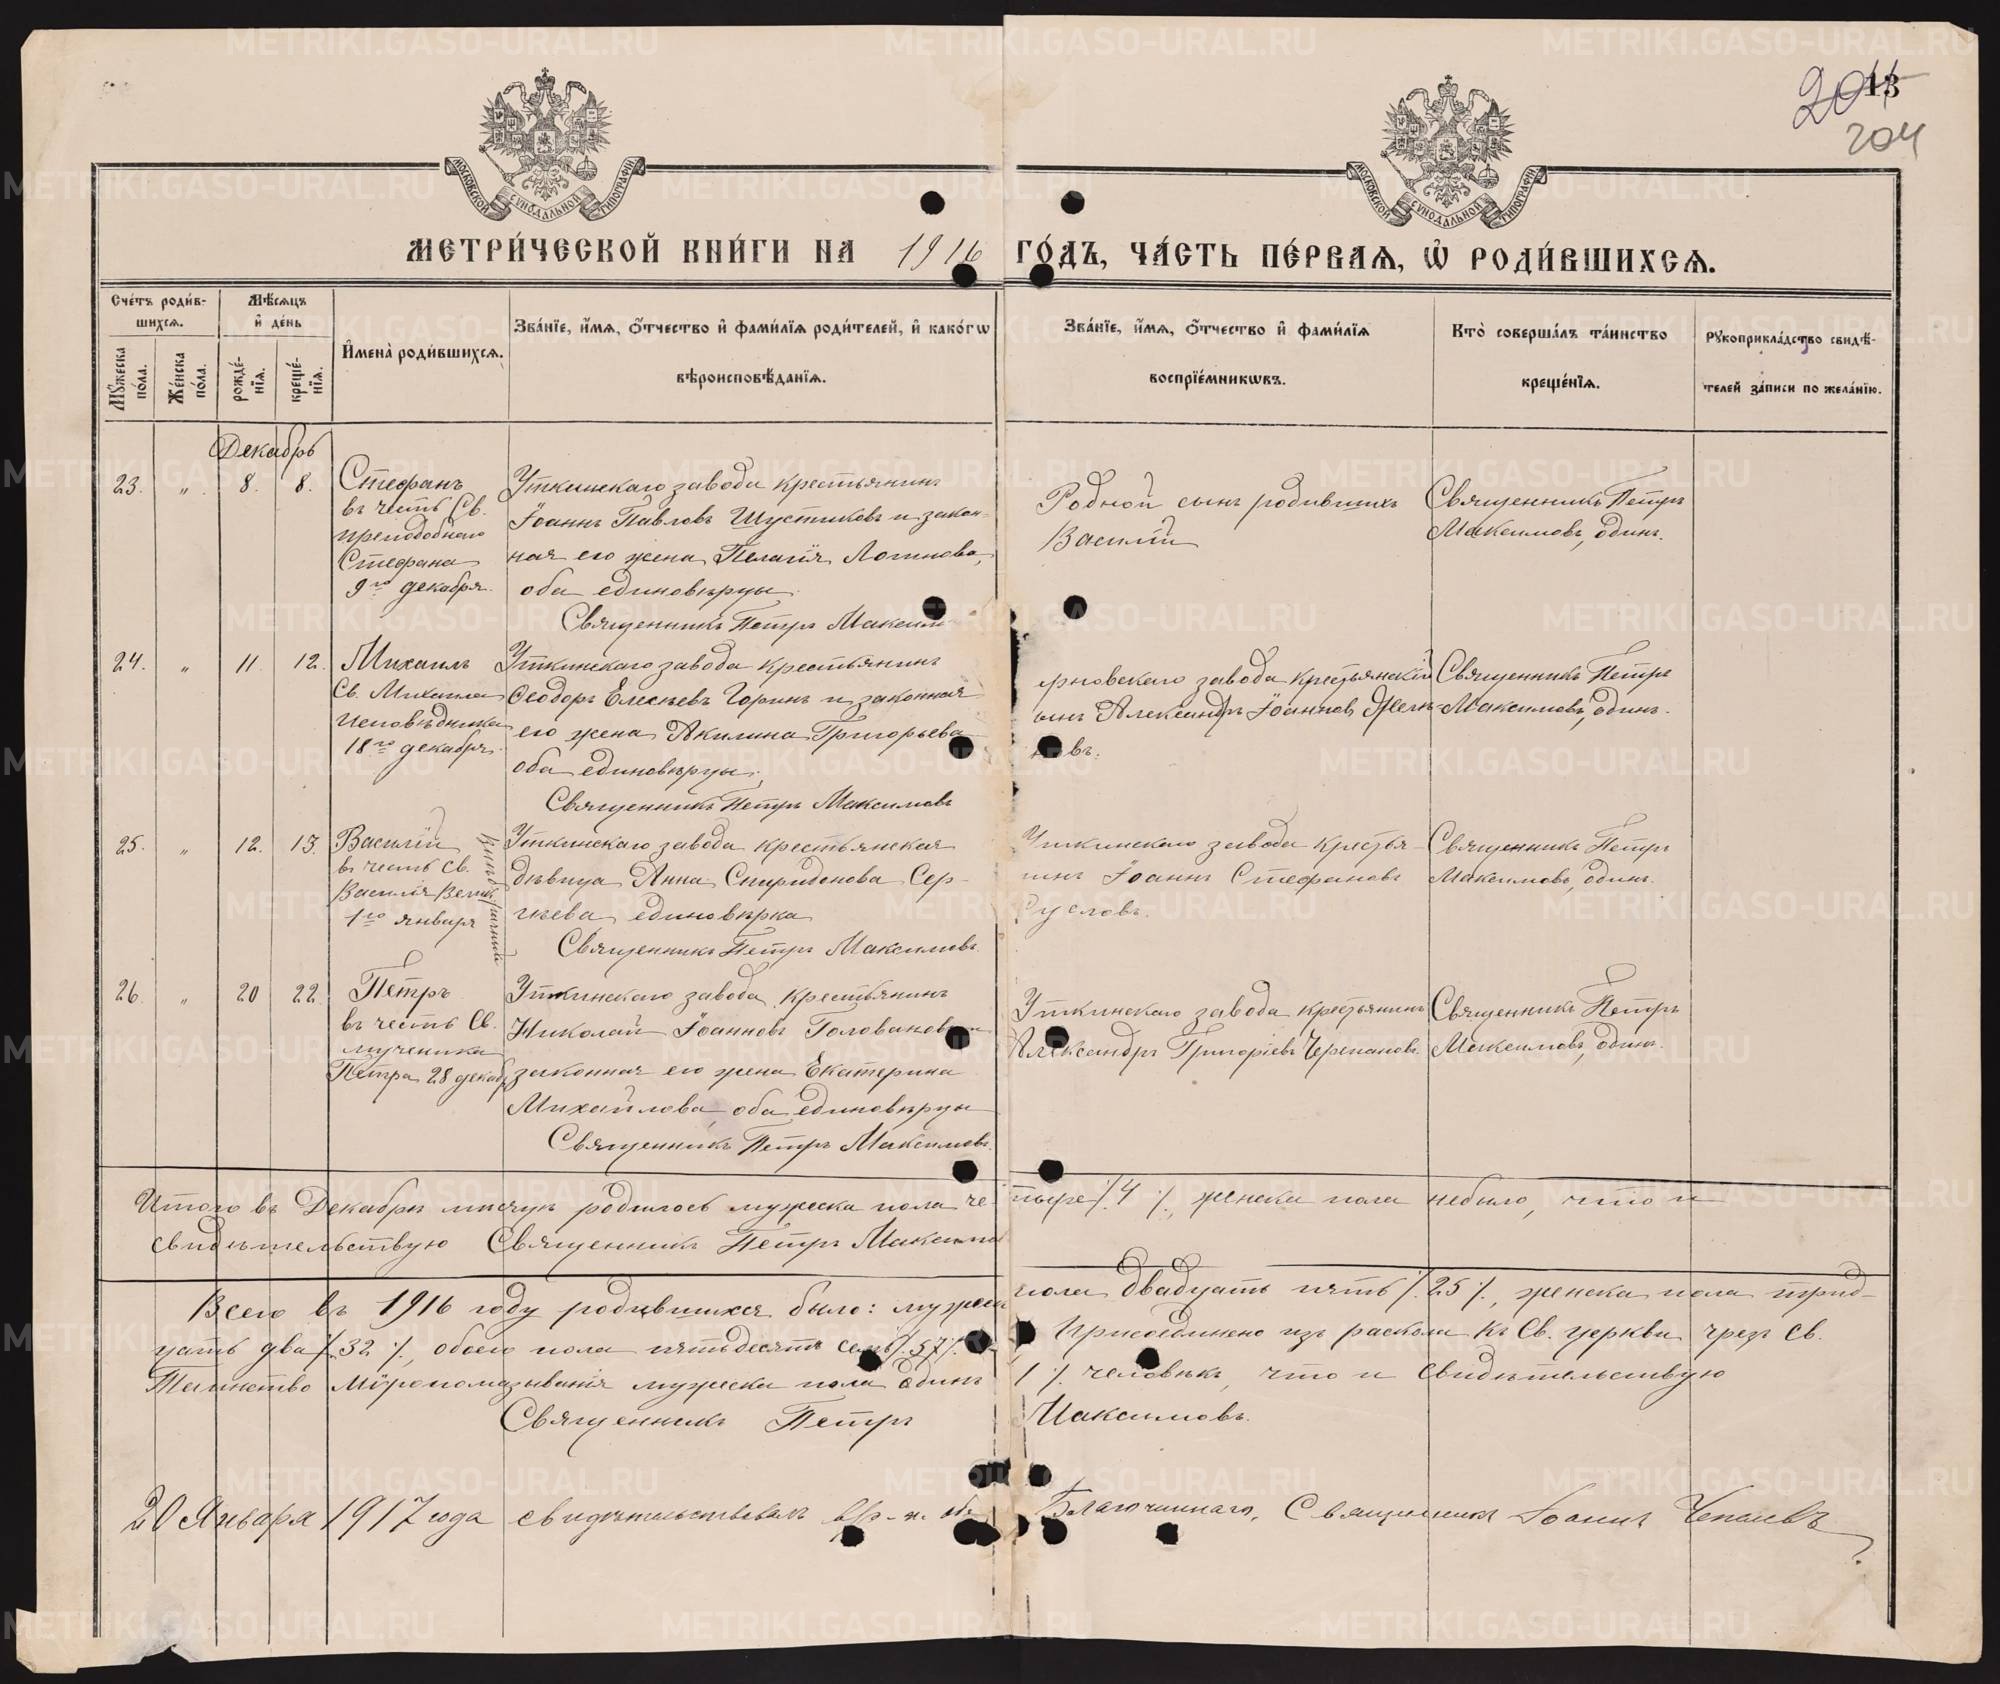 2011
13
204
МОСКОВСКОЙ СУНОДАЛЬНОЙ ТИПОГРАФІИ
МОСКОВСКОЙ СУНОДАЛЬНОЙ ТИПОГРАФІИ
МЕТРИ́ЧЕСКОЙ КНИ́ГИ НА 1916 ГО́ДЪ, ЧА́СТЬ ПЕ́РВАѦ, Ѡ҆ РОДИ́ВШИХСѦ.
Сче́тъ роди́в-
шихсѧ.
Мꙋ́жеска по́ла.
Же́нска по́ла.
Мѣ́сѧцъ
и҆ де́нь
рожде́-нїѧ.
креще́-нїѧ.
И҆мена̀ роди́вшихсѧ.
Зва́нїе, и҆́мѧ, ѻ҆́тчество и҆ фами́лїѧ роди́телей, и҆ како́гѡ
вѣроисповѣ́данїѧ.
Зва́нїе, и҆́мѧ, ѻ҆́тчество и҆ фами́лїѧ
воспрїе́мникѡвъ.
Кто̀ соверша́лъ та́инство
креще́нїѧ.
Рꙋкоприкла́дство свидѣ́-
телей за́писи по жела́нїю.
Декабрь
23. „ 8. 8.
Стефанъ
въ честь Св.
преподобнаго
Стефана
9го декабря.
Уткинскаго завода крестьянинъ
Іоаннъ Павловъ Шустиковъ и закон-
ная его жена Пелагія Логинова,
оба единовѣрцы.
Священникъ Петръ Максим
Родной сынъ родившихъ
Василій
Священникъ Петръ
Максимовъ, одинъ.
24. „ 11. 12.
Михаилъ
Св. Михаила
исповѣдника
18го декабря.
Уткинскаго завода крестьянинъ
Ѳеодоръ Елесѣевъ Горинъ и законная
его жена Акилина Григорьева
оба единовѣрцы.
Священникъ Петръ Максимовъ
завода крестьянскій
сынъ Александръ Іоанновъ
въ.
Священникъ Петръ
Максимовъ, одинъ.
25. „ 12. 13.
Василій
въ честь св.
Василія Велик.
1го января
Внѣбрачный
Уткинскаго завода крестьянская
дѣвица Анна Спиридонова Сер-
гѣева единовѣрка
Священникъ Петръ Максимовъ.
Уткинскаго завода крестья-
нинъ Іоаннъ Стефановъ
Сусловъ.
Священникъ Петръ
Максимовъ, одинъ.
26. „ 20 22.
Петръ
въ честь Св.
мученика
Петра 28 декабр
Уткинскаго завода крестьянинъ
Николай Іоанновъ Головановъ и
законная его жена Екатерина
Михайлова, оба единовѣрцы
Священникъ Петръ Максимовъ.
Уткинскаго завода крестьянинъ
Александръ Григоріевъ Черепановъ.
Священникъ Петръ
Максимовъ, одинъ.
Итого въ Декабрѣ мѣсяцѣ родилось мужеска пола четыре /. 4 ./, женска пола небыло, что и
свидѣтельствую Священникъ Петръ Максимов
Всего въ 1916 году родившихся было: мужеска пола двадцать пять /. 25 ./, женска пола трид-
цать два /. 32 ./, обоего пола пятьдесятъ семь /. 57 ./. Присоединено изъ раскола къ Св. церкви чрезъ Св.
Таинство Мѵропомазыванія мужеска пола одинъ 1 ./. человѣкъ, что и свидѣтельствую
Священникъ Петръ Максимовъ.
20 Января 1917 года свидѣтельствовалъ Благочиннаго, Священникъ Іоаннъ